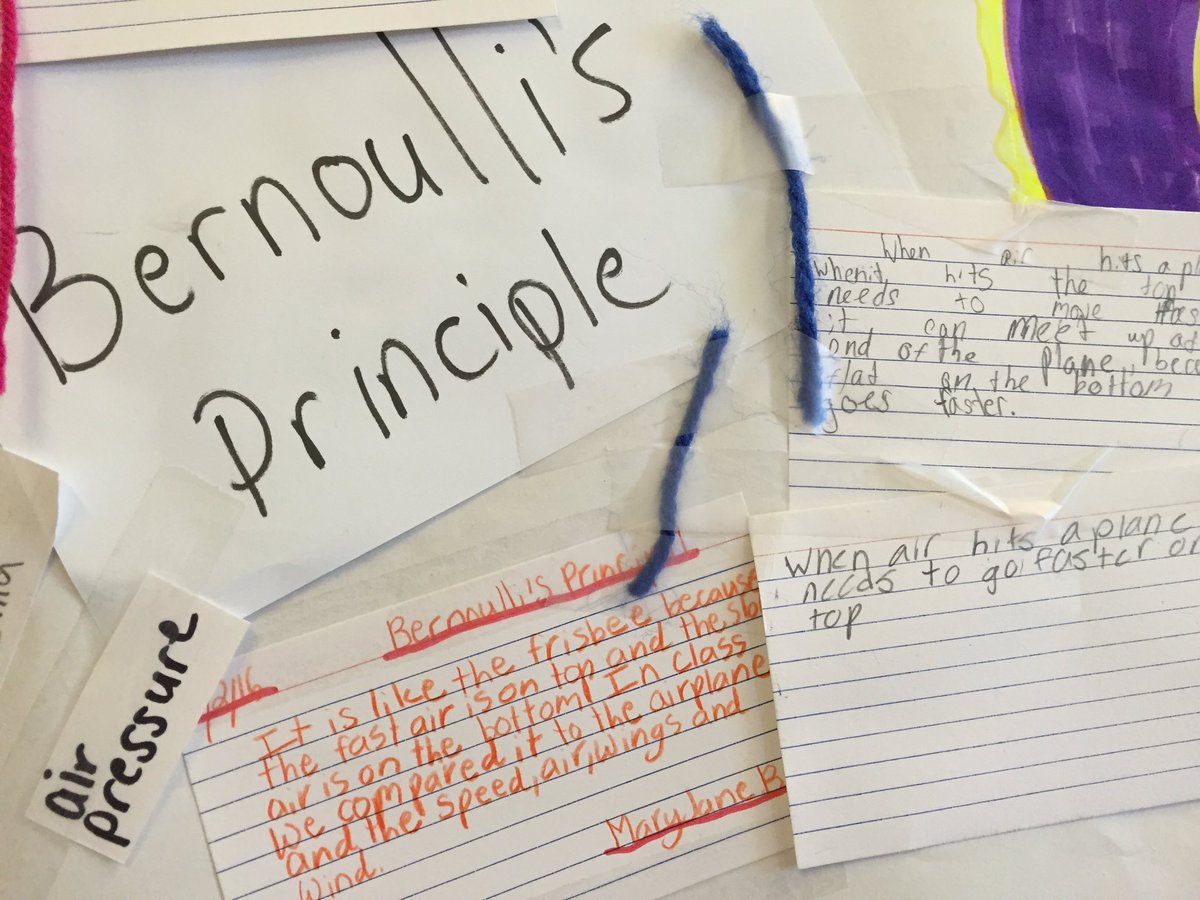 Bernoulli's
Principle
When air hits a pl
When it hits the top
needs to move
it can meet up at
end of the plane, beca
flat on the bottom
goes faster.
When air hits a plane
needs to go faster on
top
air
pressure
Bernoulli's Princ
12/16
It is like the frisbee because
the fast air is on top and the slo
air is on the bottom! In class
we compared it to the airplane
and the speed, air, wings and
wind.
Mary Jane B